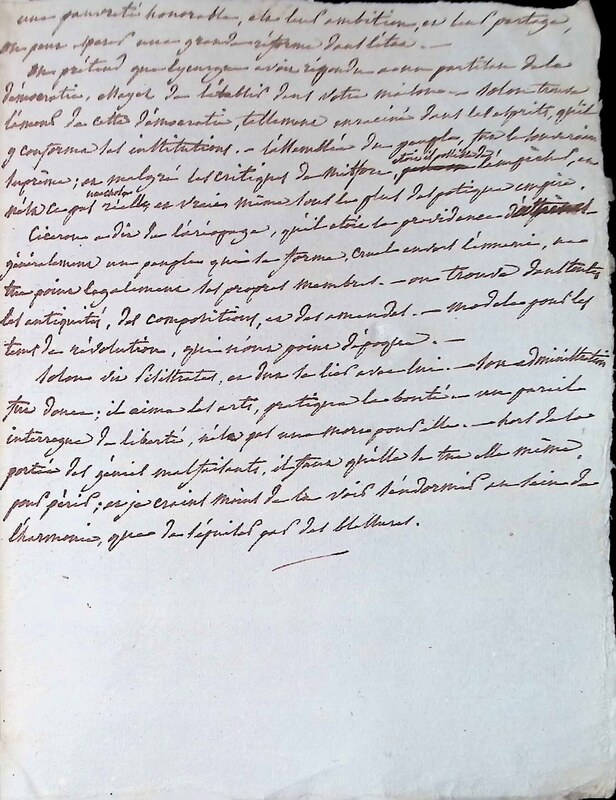 une pauvreté honorable, est leur ambition, et leur partage,
on peut espérer une grande réforme dans l'état. —
On prétend que Lycurgue avoir répondu a un partisan de la
démocratie, essayez de l'établir dans votre maison — Solon trouva
l'amour de cette démocratie, tellement enraciné dans les esprits, qu'il
y conforma ses institutions. — l'assemblée du peuple, fut le souverain
suprême; et malgré les critiques de
n'est ce pas réelle en vraie même sous le plus despotique empire.
Ciceron a dit de l'aréopage, qu'il étoit la providence d'athènes
généralement un peuple qui se forme, cruel envers l'ennemi, ne
tue point légalement ses propres membres. — on trouve dans toutes
les antiquités, des compositions, et des amendes. — modele pour les
tems de révolution, qui n'ont point d'époque. —
Solon vit Pisistrate, et dut se lier avec lui. — son administration
fut douce; il aima les arts, pratiqua la bonté — un pareil
interregne de liberté, n'est pas une mort pour elle. — hors de la
portée des génies malfaisants, il faut qu'elle se tue elle même,
pour périr; et je crains moins de la voir s'endormir au sein de
l'harmonie, que de s'épuiser par des blessures.